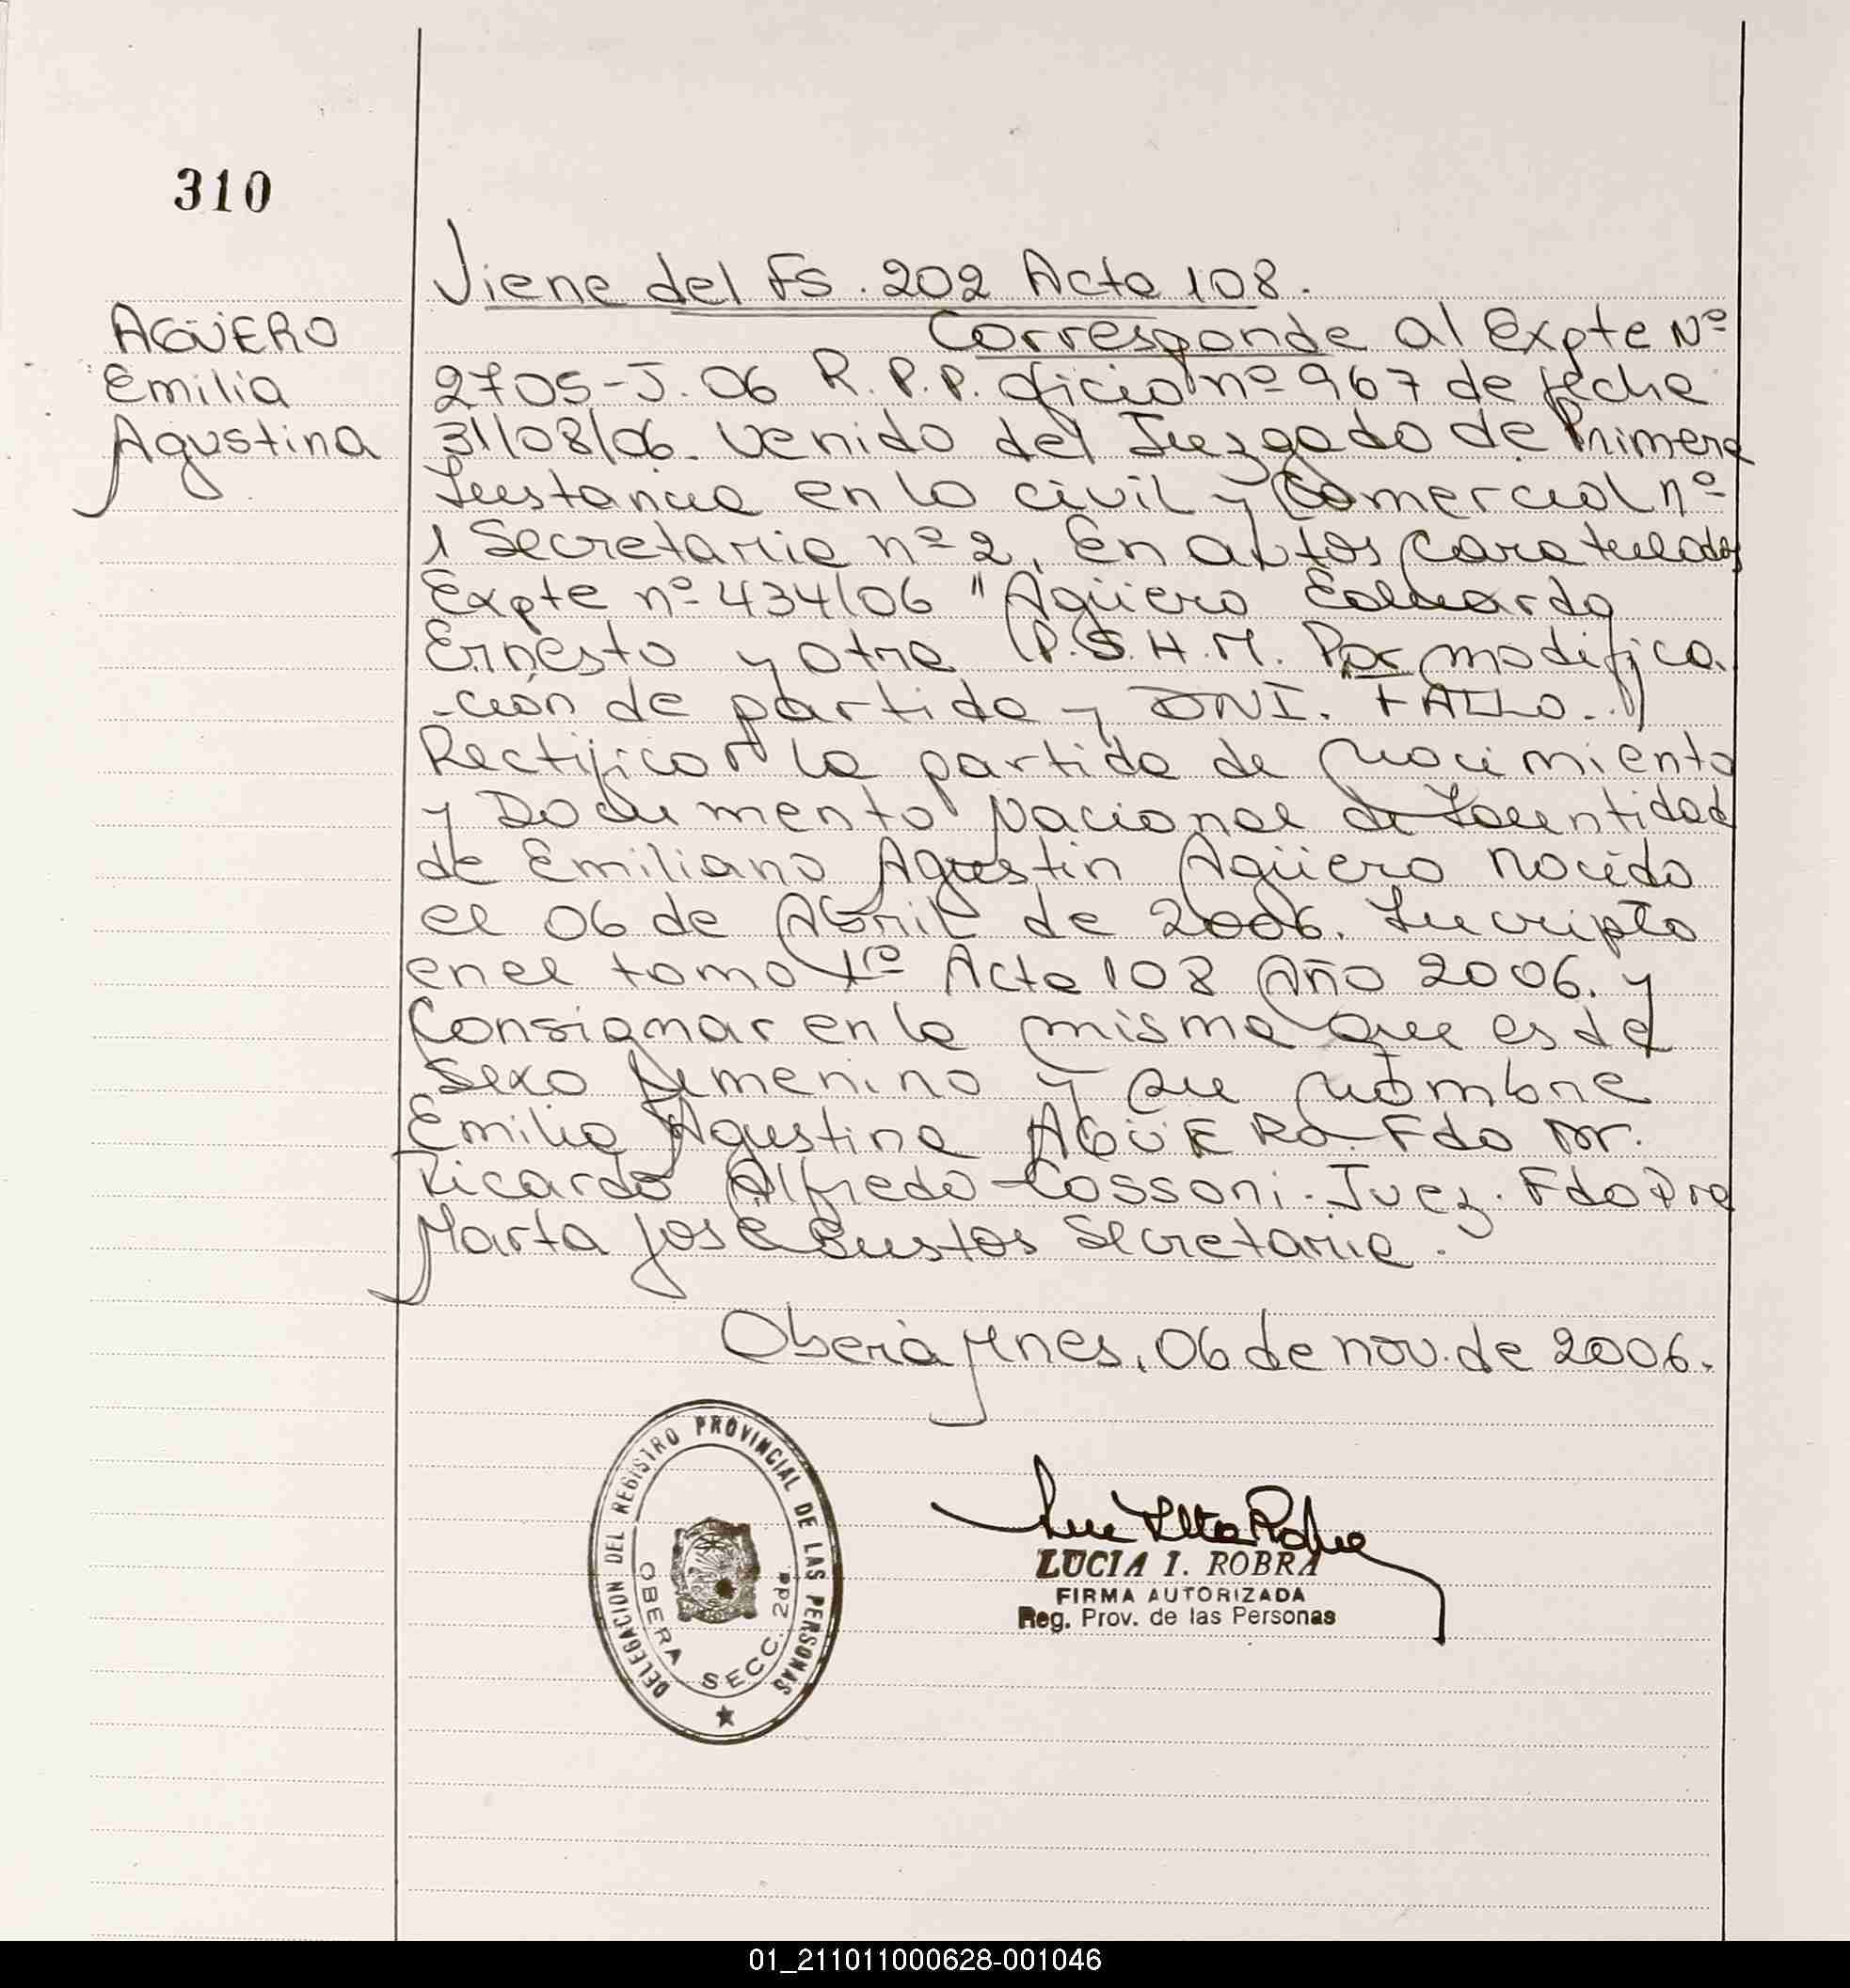 310
Viene del Fs. 202 Acta 108.
AGÜERO
Emilia
Agustina
Corresponde al Expte Nº
2705-J. 06 R.P.P. oficio nº 967 de fecha
31/08/06. venido del Juzgado de Primera
Instancia en lo civil y Comercial nº
1 Secretaria nº 2, En autos caratulados
Expte nº 434/06 "Agüero Eduardo
Ernesto y otra P.S.H.M. Por modifica.
-ción de partida y DNI. FALLO..
Rectificar la partida de nacimiento
y Documento Nacional de Identidad
de Emiliano Agustin Agüero nacido
el 06 de Abril de 2006. Incripto
en el tomo 1º Acta 108 Año 2006. y
Consignar en la misma que es de
sexo femenino y su nombre
Emilia Agustina AGÜERO-Fdo Dr.
Ricardo Alfredo Cossoni. Juez. Fdo Dra
Marta José Bustos Secretaria.
Oberá Mnes, 06 de nov. de 2006.
DELEGACION DEL REGISTRO PROVINCIAL DE LAS PERSONAS
OBERA SECC. 2da
LUCIA I. ROBRA
FIRMA AUTORIZADA
Reg. Prov. de las Personas
01_211011000628-001046